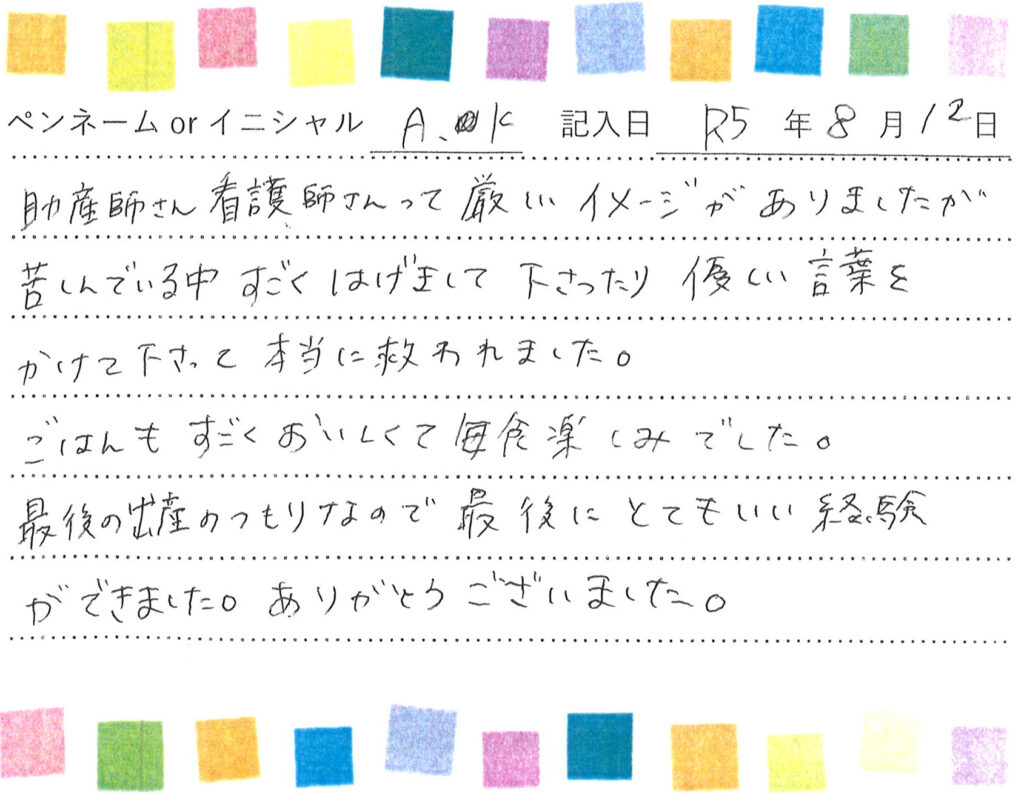 ペンネーム or イニシャル A. K 記入日 R5 年 8 月 12 日
助産師さん 看護師さんって 厳しい イメージが ありましたが
苦しんでいる中 すごく はげまして 下さったり 優しい 言葉を
かけて下さって 本当に救われました。
ごはんも すごくおいしくて 毎食楽しみでした。
最後の出産のつもりなので 最後に とてもいい 経験
ができました。ありがとうございました。